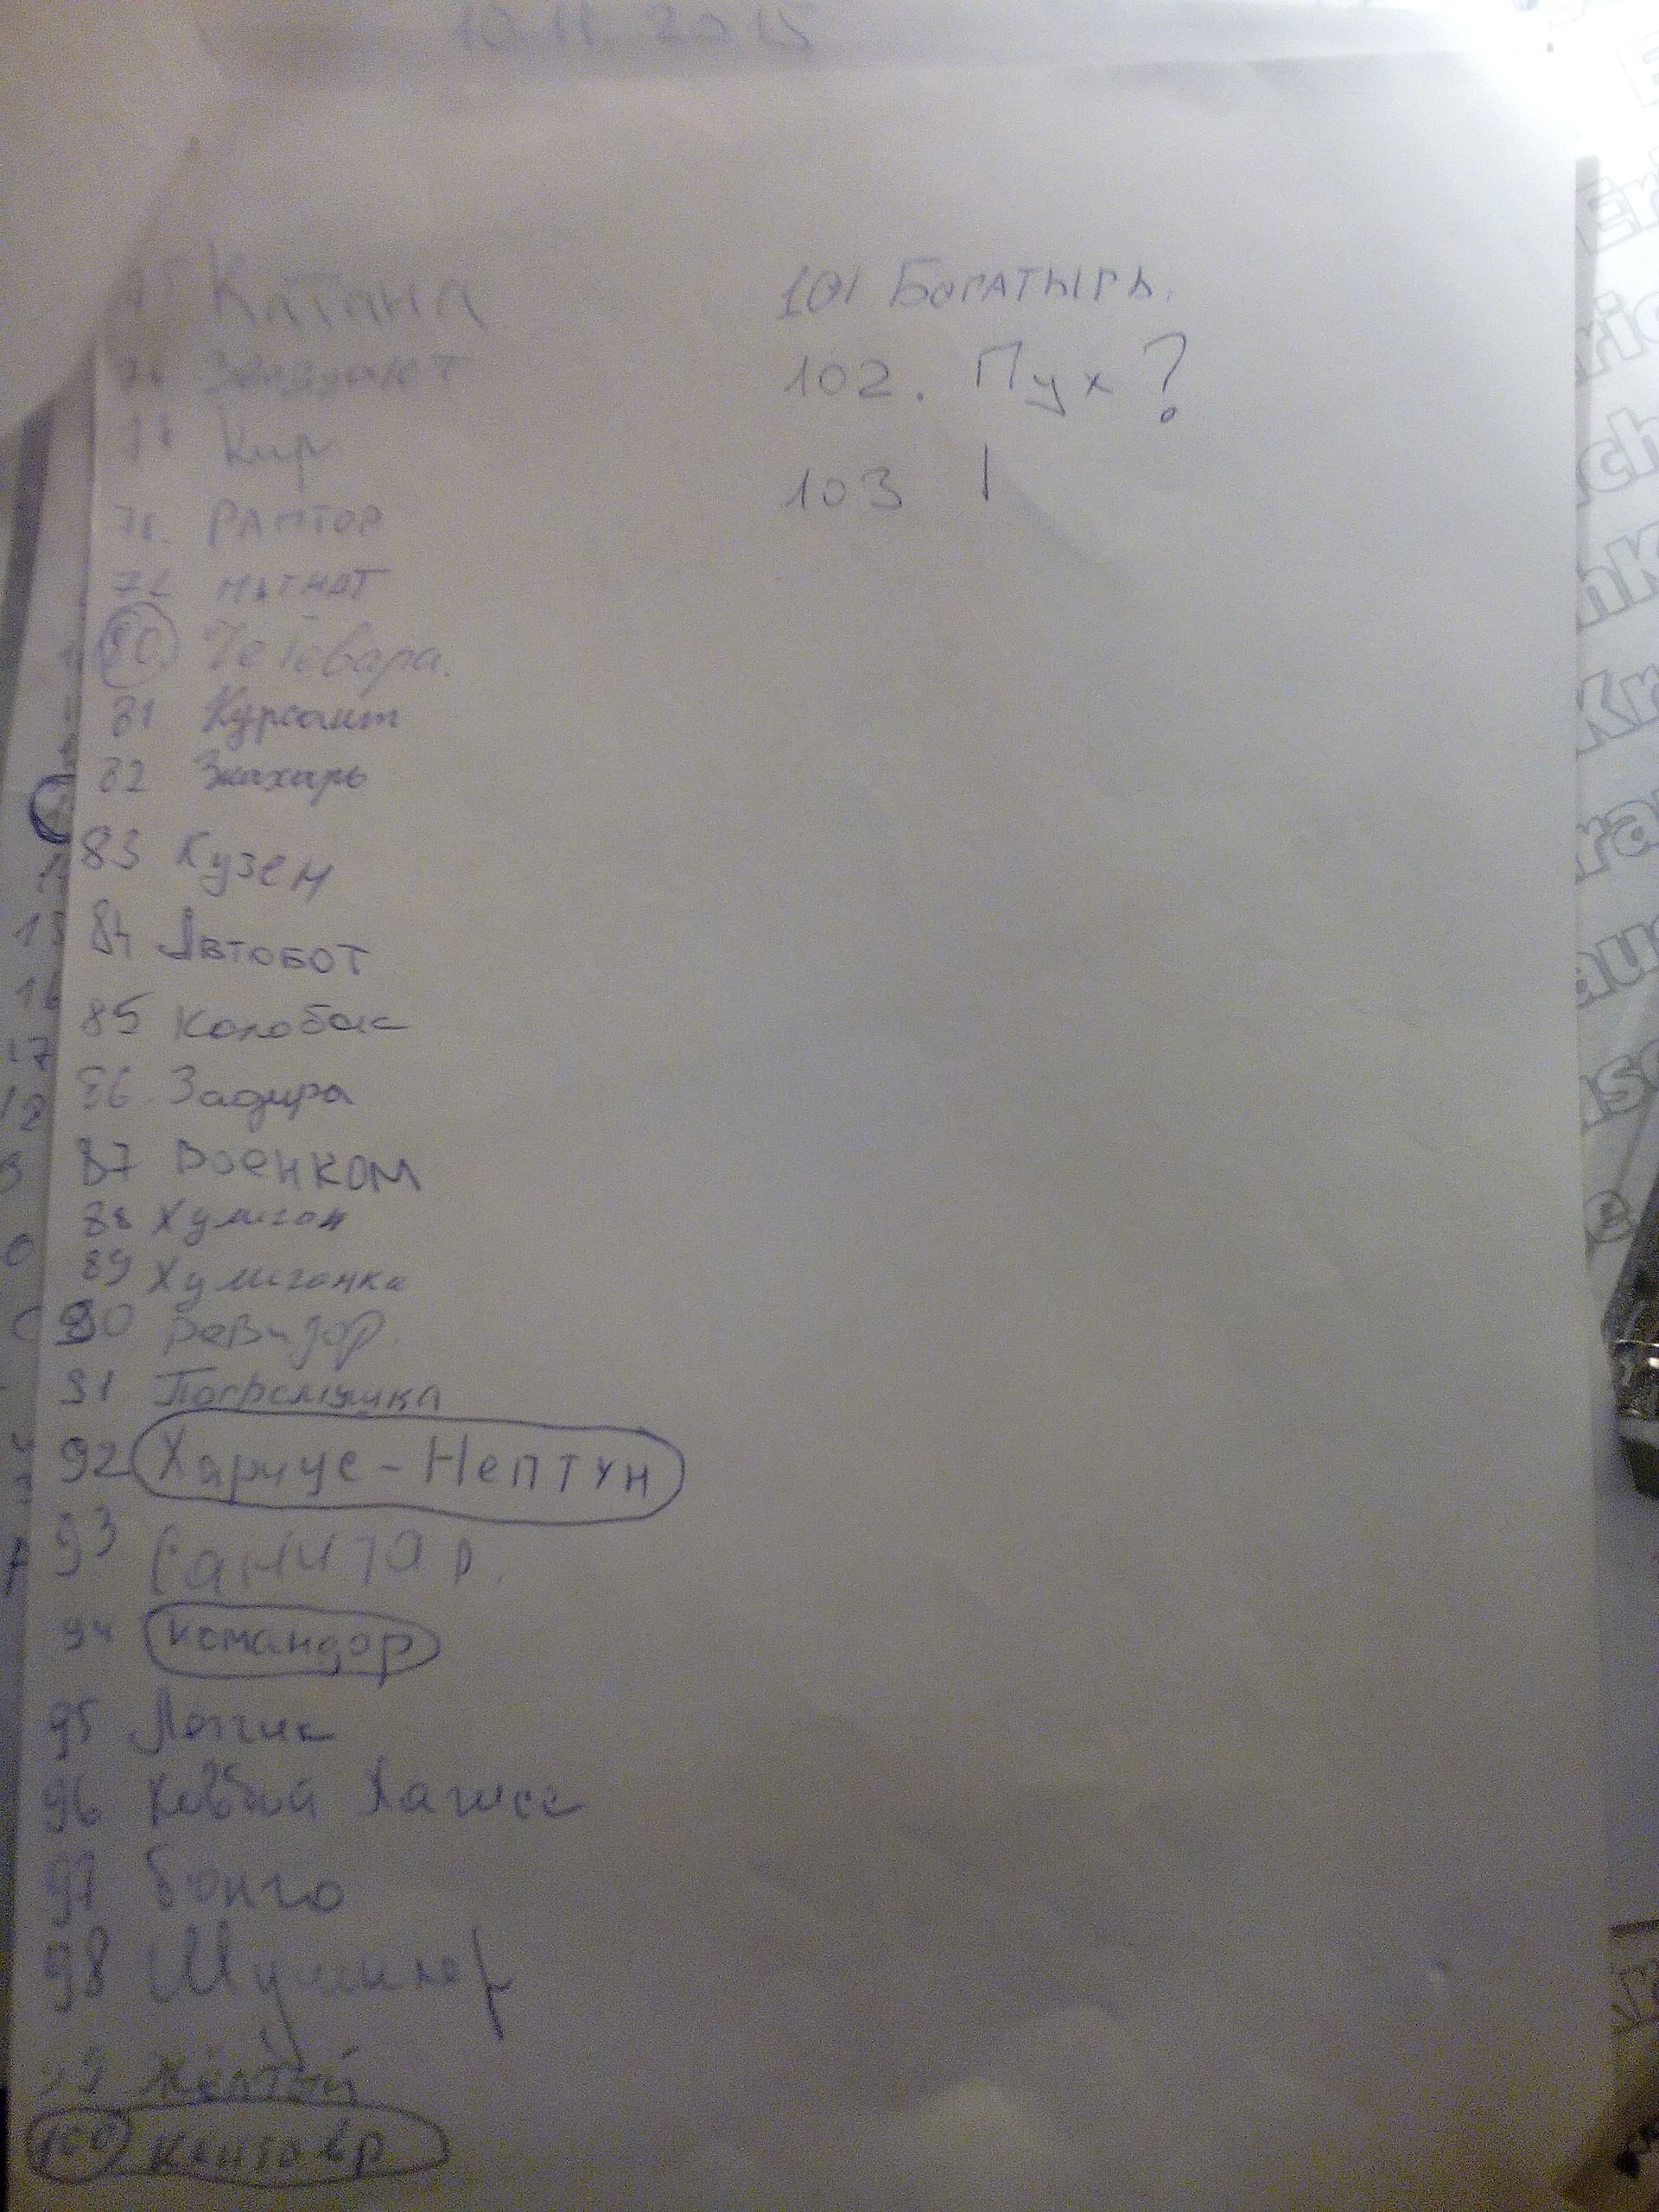 10.11.2015
75 Катана
76
77 Кир
78. РАПТОР
79 МАГНАТ
80. Че Гевара.
81 Курсант
82 Знахарь
83 Кузен
84 Автобот
85 Колобок
86. Задира
87 Военком
88 Хулиган
89 Хулиганка
90 Ревизор.
91 Погремушка
92 Хариус - Нептун
93 Санитар.
94 командор
95 Логик
96 Ковбой Хаггисс
97 Бонго
98
99 Жёлтый
100 Кентавр
101 Богатырь.
102. Пух?
103